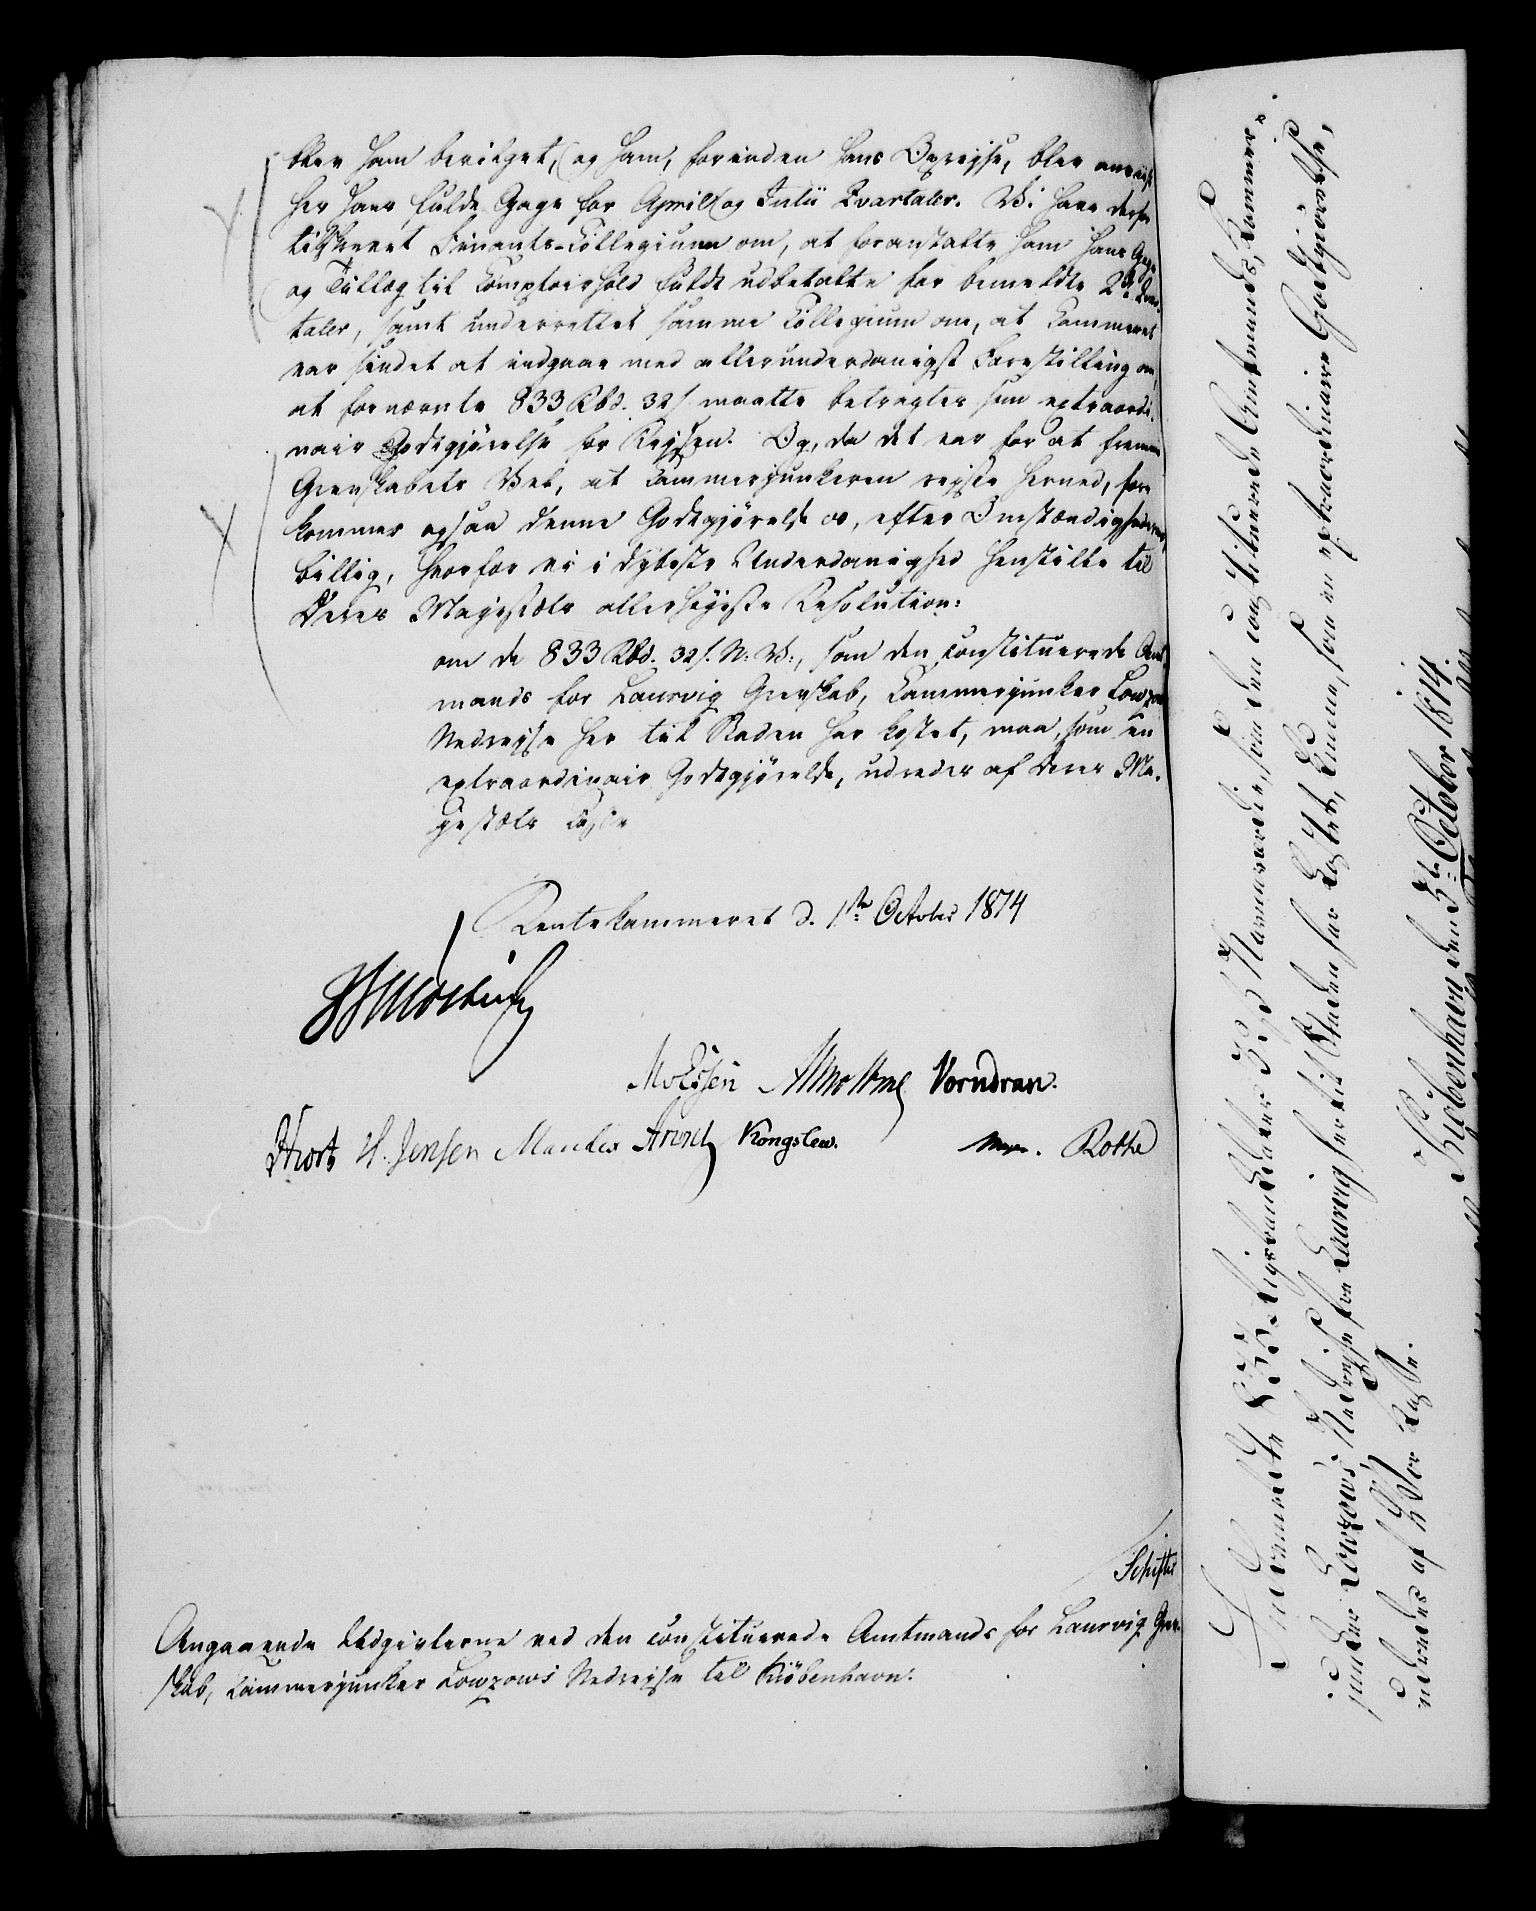 blev ham bevilget, og ham, forinden hans Opreise, blev anviist
her hans fulde Gage for April og Julii Qvartaler. Vi have derfor
tilskrevet Finants-Collegium om, at foranstalte ham hans Gage
og Tillæg til Comptoirhold fuldt udbetalte for bemeldte 2de Qvar-
taler, samt underrettet samme Collegium om, at Kammeret
var sindet at indgaae med allerunderdanigst Forestilling om,
at fornævnte 833 Rbd. 32 s maatte betragtes som extraordi-
nair Godtgjørelse for Rejsen. Og, da det var for at fremme
Grevskabets Vel, at Kammerjunkeren rejste herned, fore
kommer ogsaa denne Godtgjørelse os, efter Omstændighederne,
billig, hvorfor vi i dybeste Underdanighed henstille til
Deres Majestæts allerhøjeste Resolution:
om de 833 Rbd. 32 s. N: V:, som den constituerede Amt-
mands for Laurvig Grevskab, Kammerjunker Lowzows
Nedrejse her til Staden har kostet, maa, som en
extraordinair Godtgjørelse, udredes af Deres Ma-
jestæts Casse
Rentekammeret d. 1ste October 1814
Mösting
Molssen Vorndran.
Hiort H. Jensen Manthey Arnetz Kongslew. Rothe
Schiftes
Angaaende Udgivterne ved den constituerede Amtmands for Laurvig Grev-
skab, Kammerjunker Lowzows Nedrejse til Kiöbenhavn:
Indbemeldte 833 Rigsbankdaler 32 s Navneværdie, som den constituerede Amtmands, Kammer-
junker Lowzows, Nedrejse fra Laurvig her til Staden har kostet, kunne, som en extraordinair Godtgiörelse,
udredes af Vor Kasse.
Kiöbenhavn den 3die October 1814.